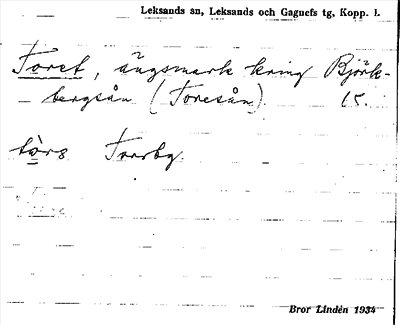 Leksands sn, Leksands och Gagnefs tg, Kopp. l.
Toret, ängsmark kring Björk-
bergsån (Toresån). 15.
Torsby
Bror Lindén 1934